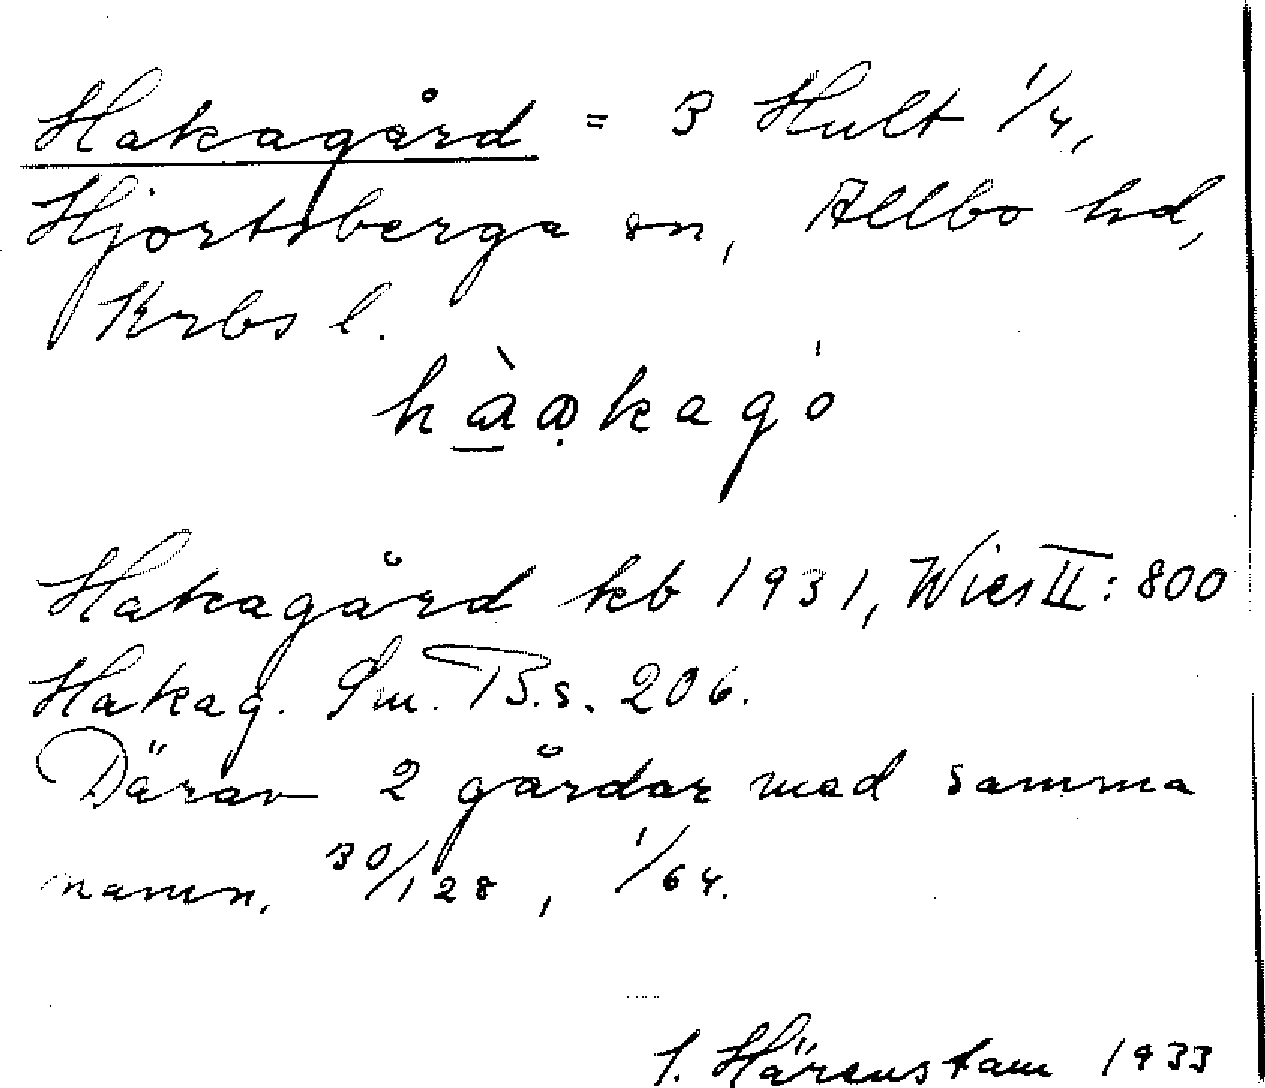 Hakagård = 3 Hult 1/4,
Hjortsberga sn, Allbo hd,
Krbs l.
hàakagó
Hakagård kb 1931, Wies II: 800
Hakag. Sm. B.s. 206.
Därav 2 gårdar med samma
namn, 30/128, 1/64.
S. Härenstam 1933